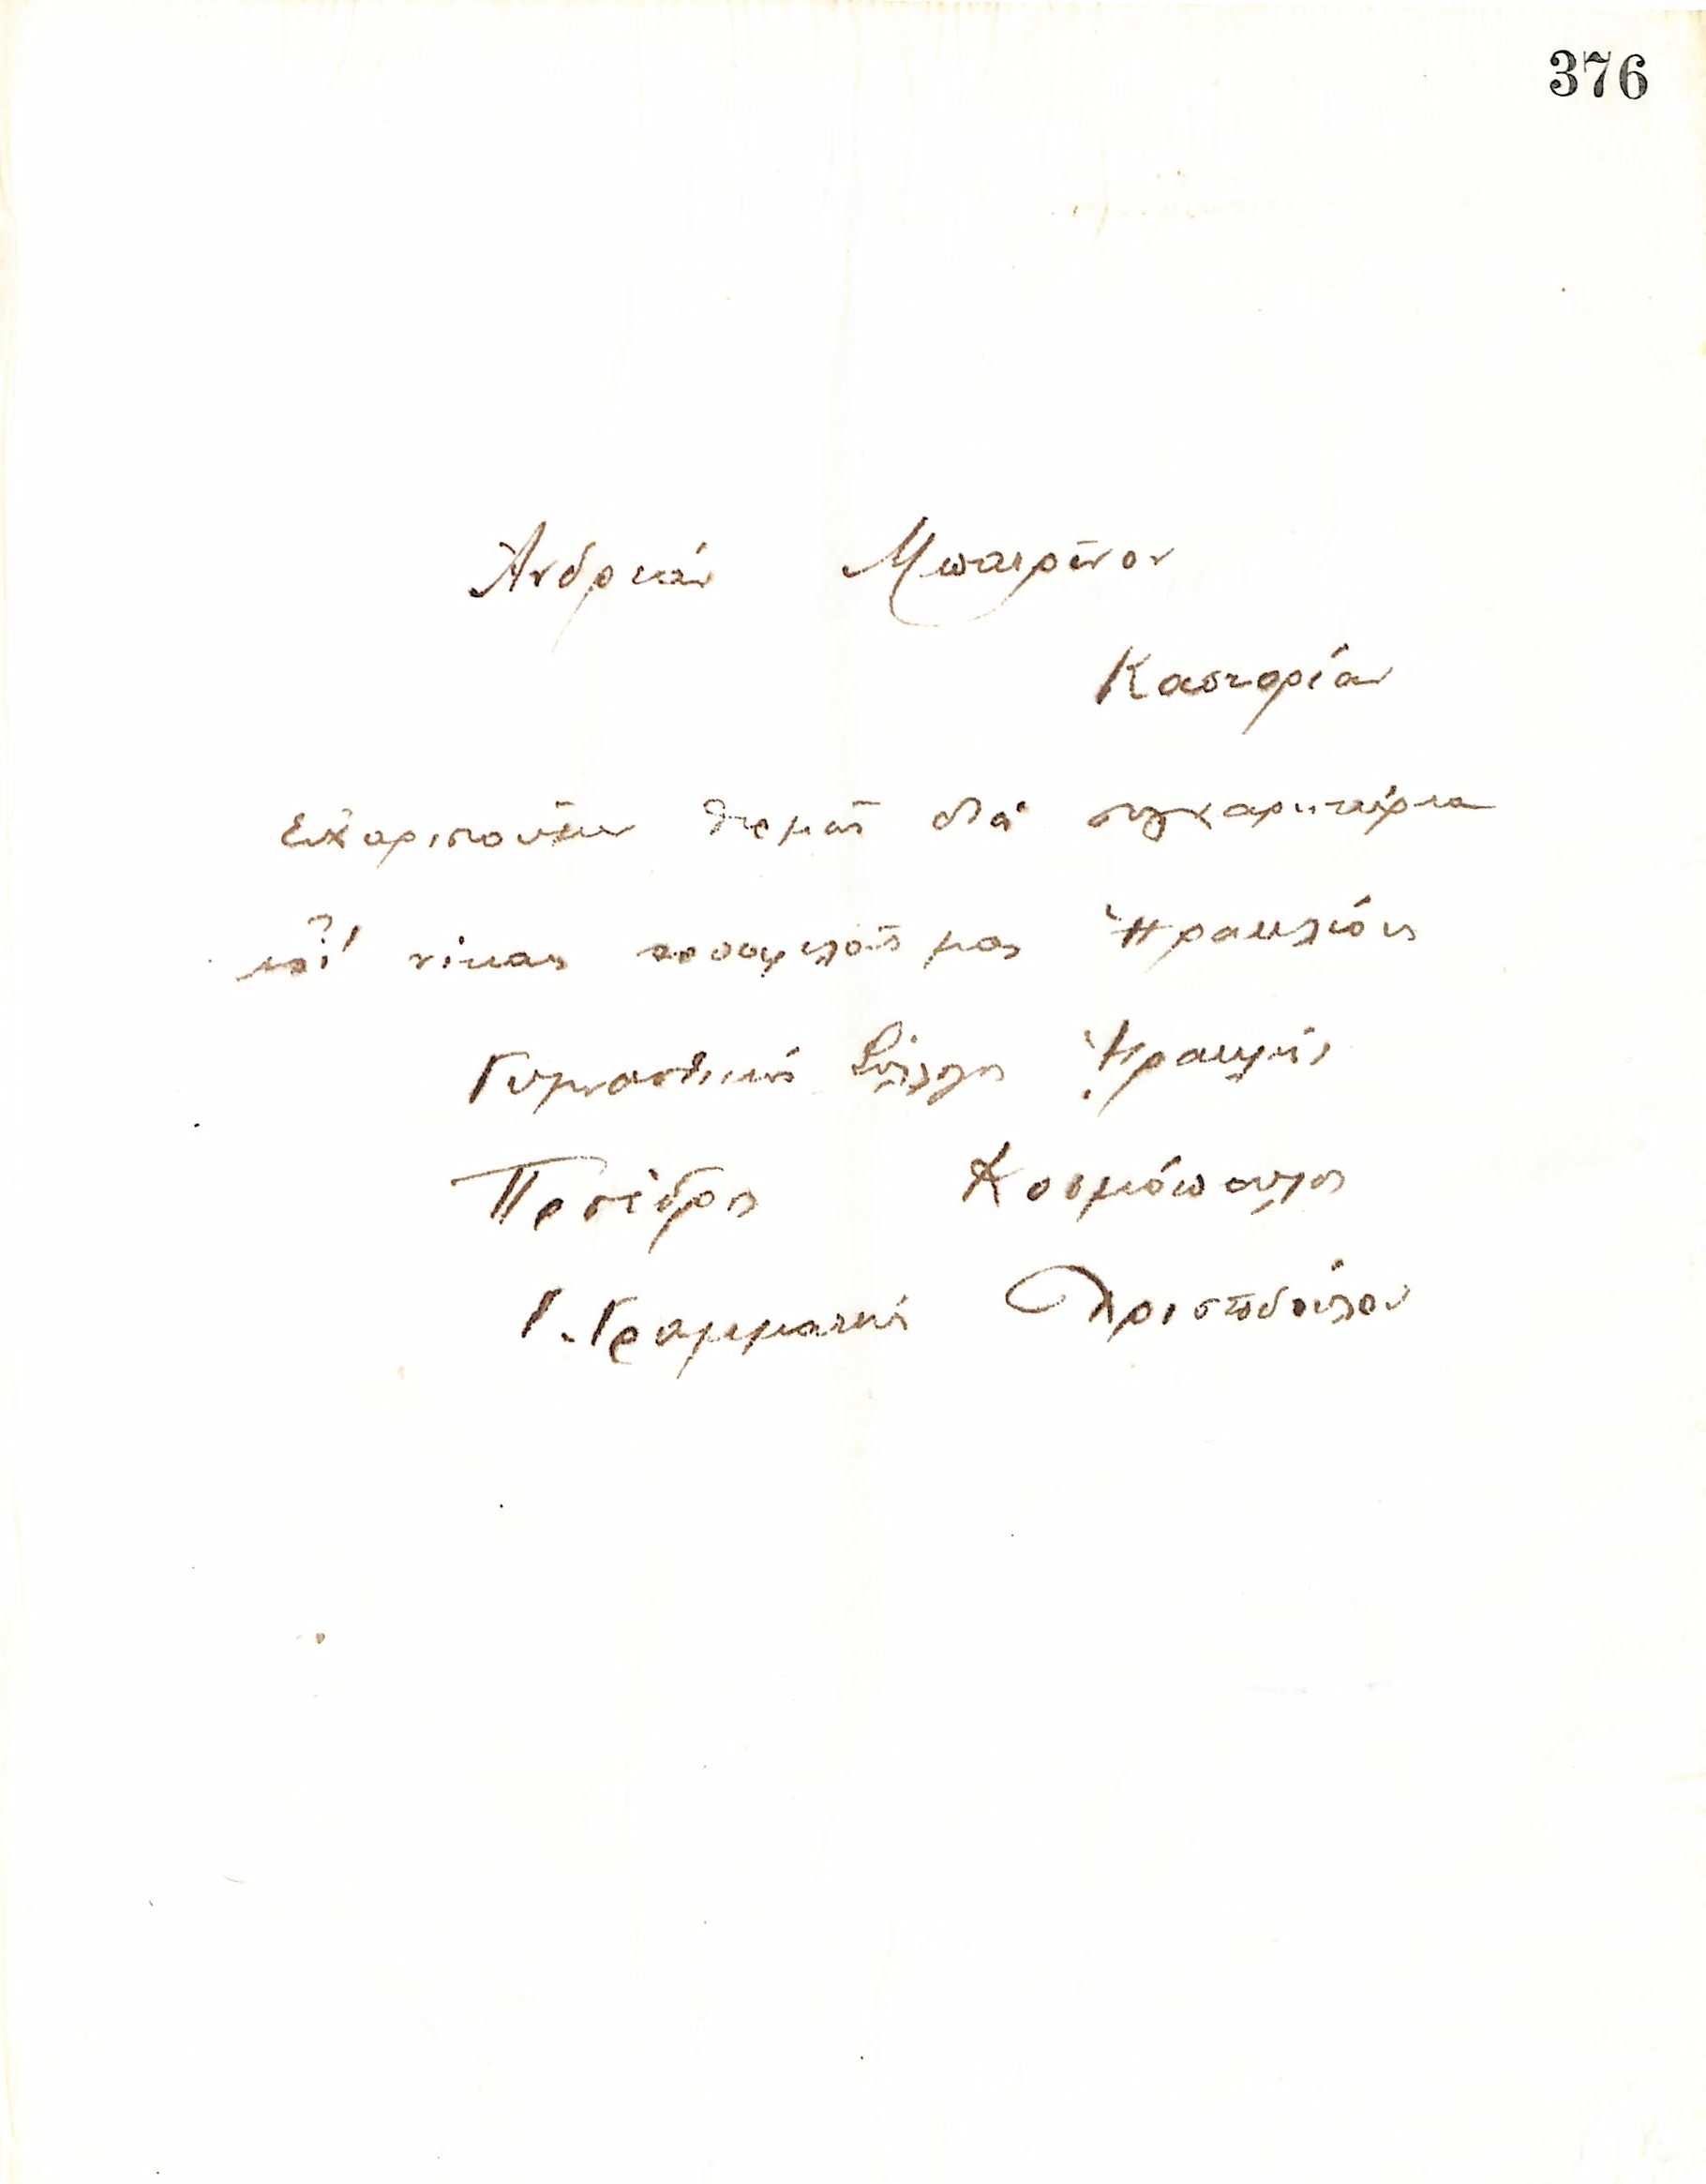 376
Ανδρέαν Μπαϊρῶνον
Καστορίαν
Εὐχαριστοῦμεν θερμῶς διὰ συγχαρητήρια
ἐπὶ νίκαις προσφιλοῦς μας Ἡρακλέους
Γυμναστικὸς Σύλλογος Ἡρακλῆς
Πρόεδρος Κοσμόπουλος
Γ. Γραμματεὺς Χριστοδούλου